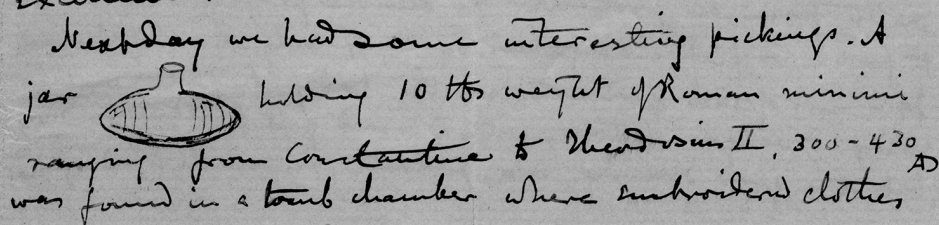 Next day we had some interesting pickings. A
jar holding 10 lbs weight of Roman minimi
ranging from Constantine to Theodosius II, 300-430 AD
was found in a tomb chamber where embroidered clothes